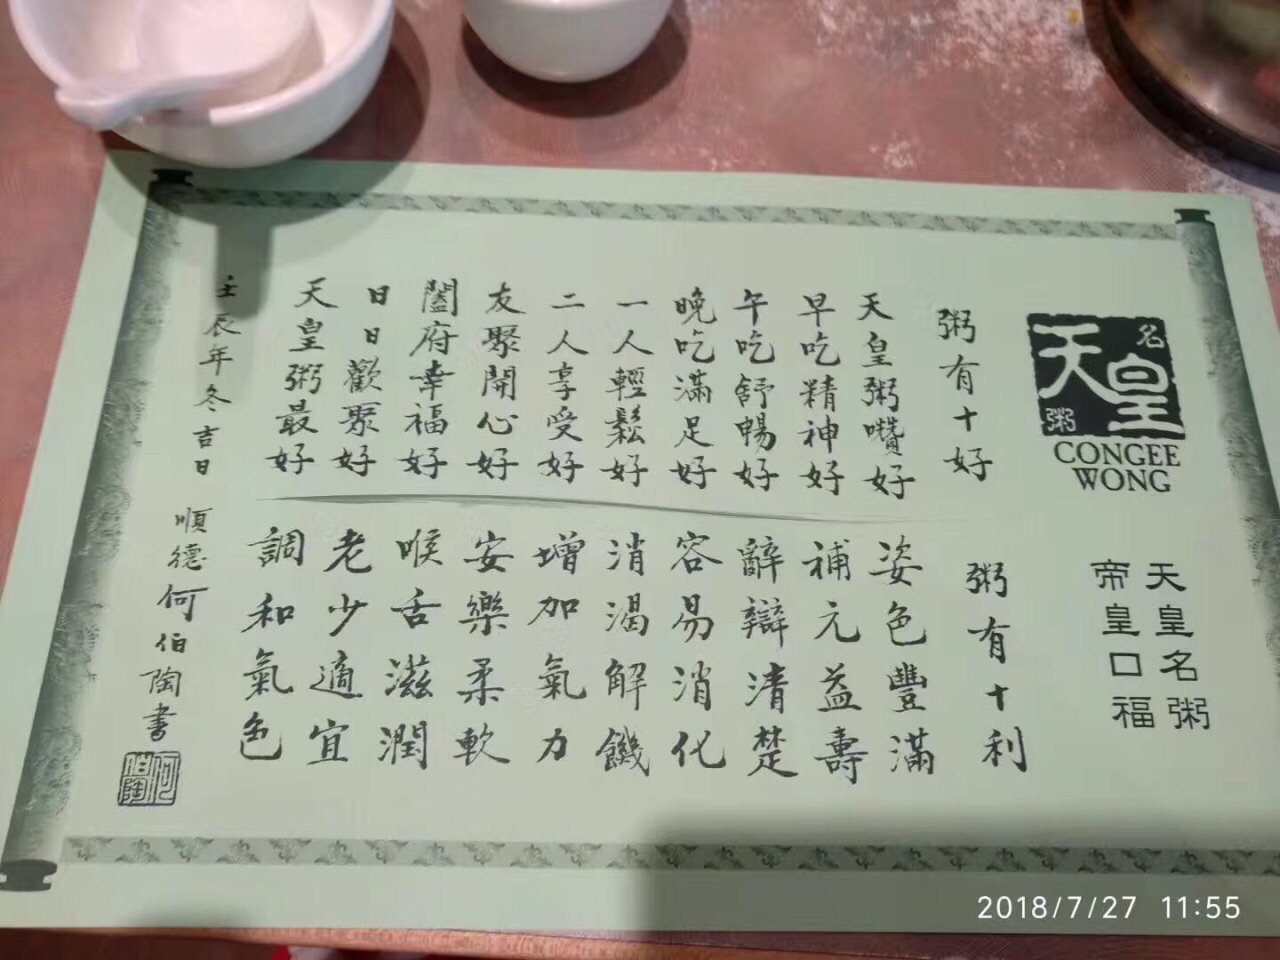 天皇名粥
CONGEE
WONG
天皇名粥
帝皇口福
粥有十好
天皇粥囋好
早吃精神好
午吃舒暢好
晚吃滿足好
一人輕鬆好
二人享受好
友聚開心好
闔府幸福好
日日歡聚好
天皇粥最好
粥有十利
姿色豐滿
補元益壽
辭辯清楚
容易消化
消渴解饑
增加氣力
安樂柔軟
喉舌滋潤
老少適宜
調和氣色
壬辰年冬吉日
順德何伯陶書
何伯陶
2018/7/27 11:55